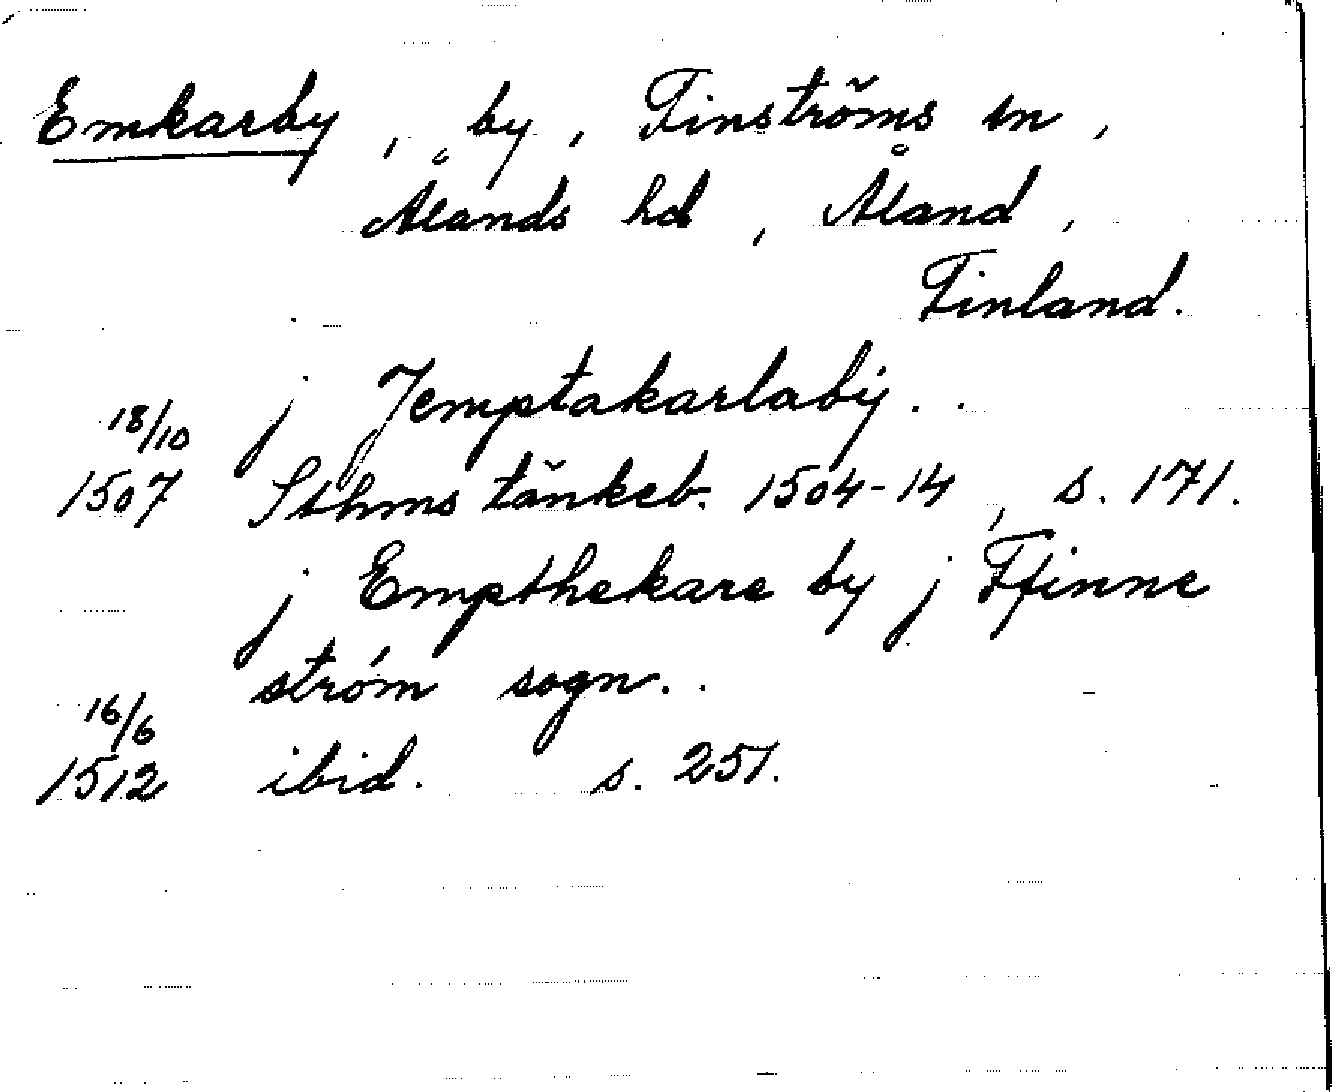 Emkarby, by, Finströms sn,
Ålands hd, Åland,
Finland.
j Jemptakarlabÿ..
18/10
1507 Sthms tänkeb. 1504-14, s. 171.
j Empthekare by j Ffinne
ström sogn..
16/6
1512 ibid. s. 251.